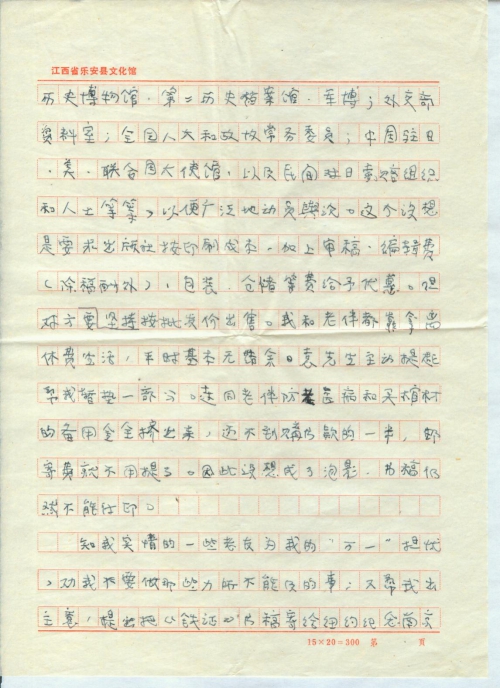 江西省乐安县文化馆
历史博物馆、第二历史档案馆、军博；外交部
资料室；全国人大和政协常务委员；中国驻日
、美、联合国大使馆，以及民间对日索赔组织
和人士等等，以便广泛地动员舆论。这个设想
是要求出版社按印刷成本，加上审稿、编辑费
（除稿酬外），包装、仓储等费给予优惠。但
对方要坚持按批发价出售。我和老伴都靠拿退
休费生活，平时基本无储余。袁先生主动提起
帮我暂垫一部分。连同老伴防老医病和买棺材
的备用金全挤出来，还不到购书款的一半，邮
寄费就不用提了。因此设想成了泡影。书稿仍
然不能付印。
知我实情的一些老友为我的“万一”担忧
，劝我不要做那些力所不能及的事；又帮我出
主意，提出把《铁证》书稿寄给纽约纪念南京
15×20=300 第 页